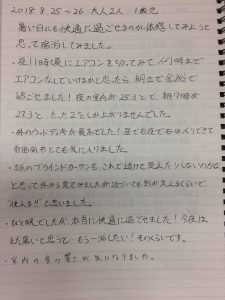 2018.8.25〜26 大人2人 1歳児
暑い日にも快適に過ごせるのか体感してみようと
思って宿泊してみました。
・夜11時頃にエアコンを切ってみて 何時まで
エアコンなしでいけるかと思ったら 朝まで余裕で
過ごせました!夜の室内が25.3℃で、朝7時が
27.3℃。たった2℃しか上がりませんでした。
・外のウッドデッキが最高でした!昼でも夜でもゆっくりできて
雰囲気もとても気に入りました。
のブラインドカーテンも、これで透けて見えたりしないのかな
と思って外から見てみましたが近づいても影が見えるくらいで、
使える!!と思いました。
・ひと晩でしたが、本当に快適に過ごせました!今夜は
また暑いと思うと もう一泊したい!そのくらいです。
・室内の音の響きが気になりました。